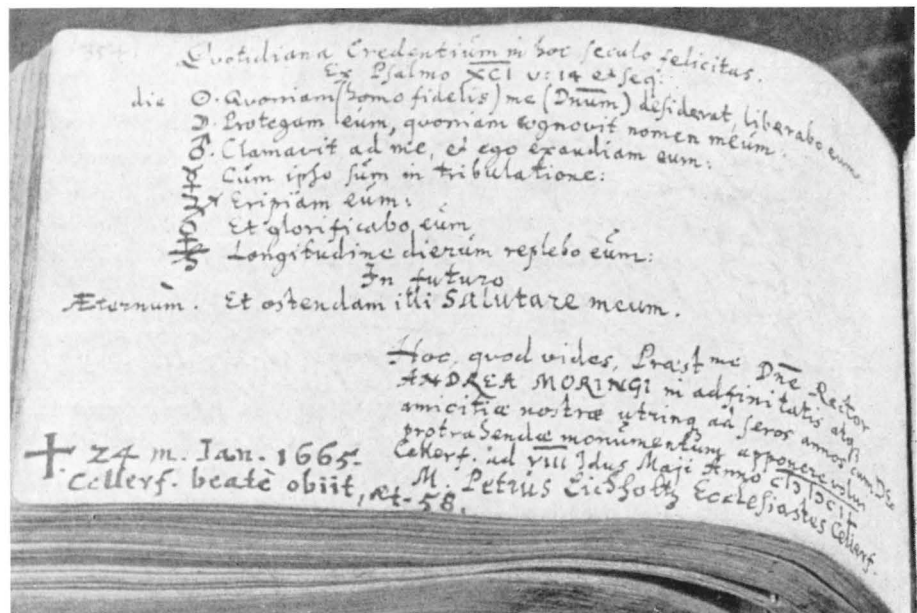 Quotidiana Credentiúm in hoc seculo felicitas.
Ex Psalmo XCI v: 14 et seq:
die ☉. Quoniam (homo fidelis) me (Dnum) desiderat, liberabo eum:
☽. Protegam eúm, quoniam cognovit nomen meúm:
♂. Clamavit ad me, et ego exaudiam eum:
☿ Cúm ipso súm in tribulatione:
♃ Eripiam eúm:
♀ Et glorificabo eúm
♄ Longitudine dierúm replebo eúm:
In futuro
Æternùm. Et ostendam illi Salutare meum.
Hoc, quod vides, Præst me Dne Rector
ANDREA MORINGI in adfinitatis atq
amicitiæ nostræ utrinq ad seros annos cum DEo
protrahendæ monúmentúm apponere volui
Cellerf. ad VIII Idus Maji Anno
M. Petrús Eichholtz Ecclesiastes Cellerf.
+ 24 m. Jan. 1665.
Cellerf. beatè obiit, æt. 58.